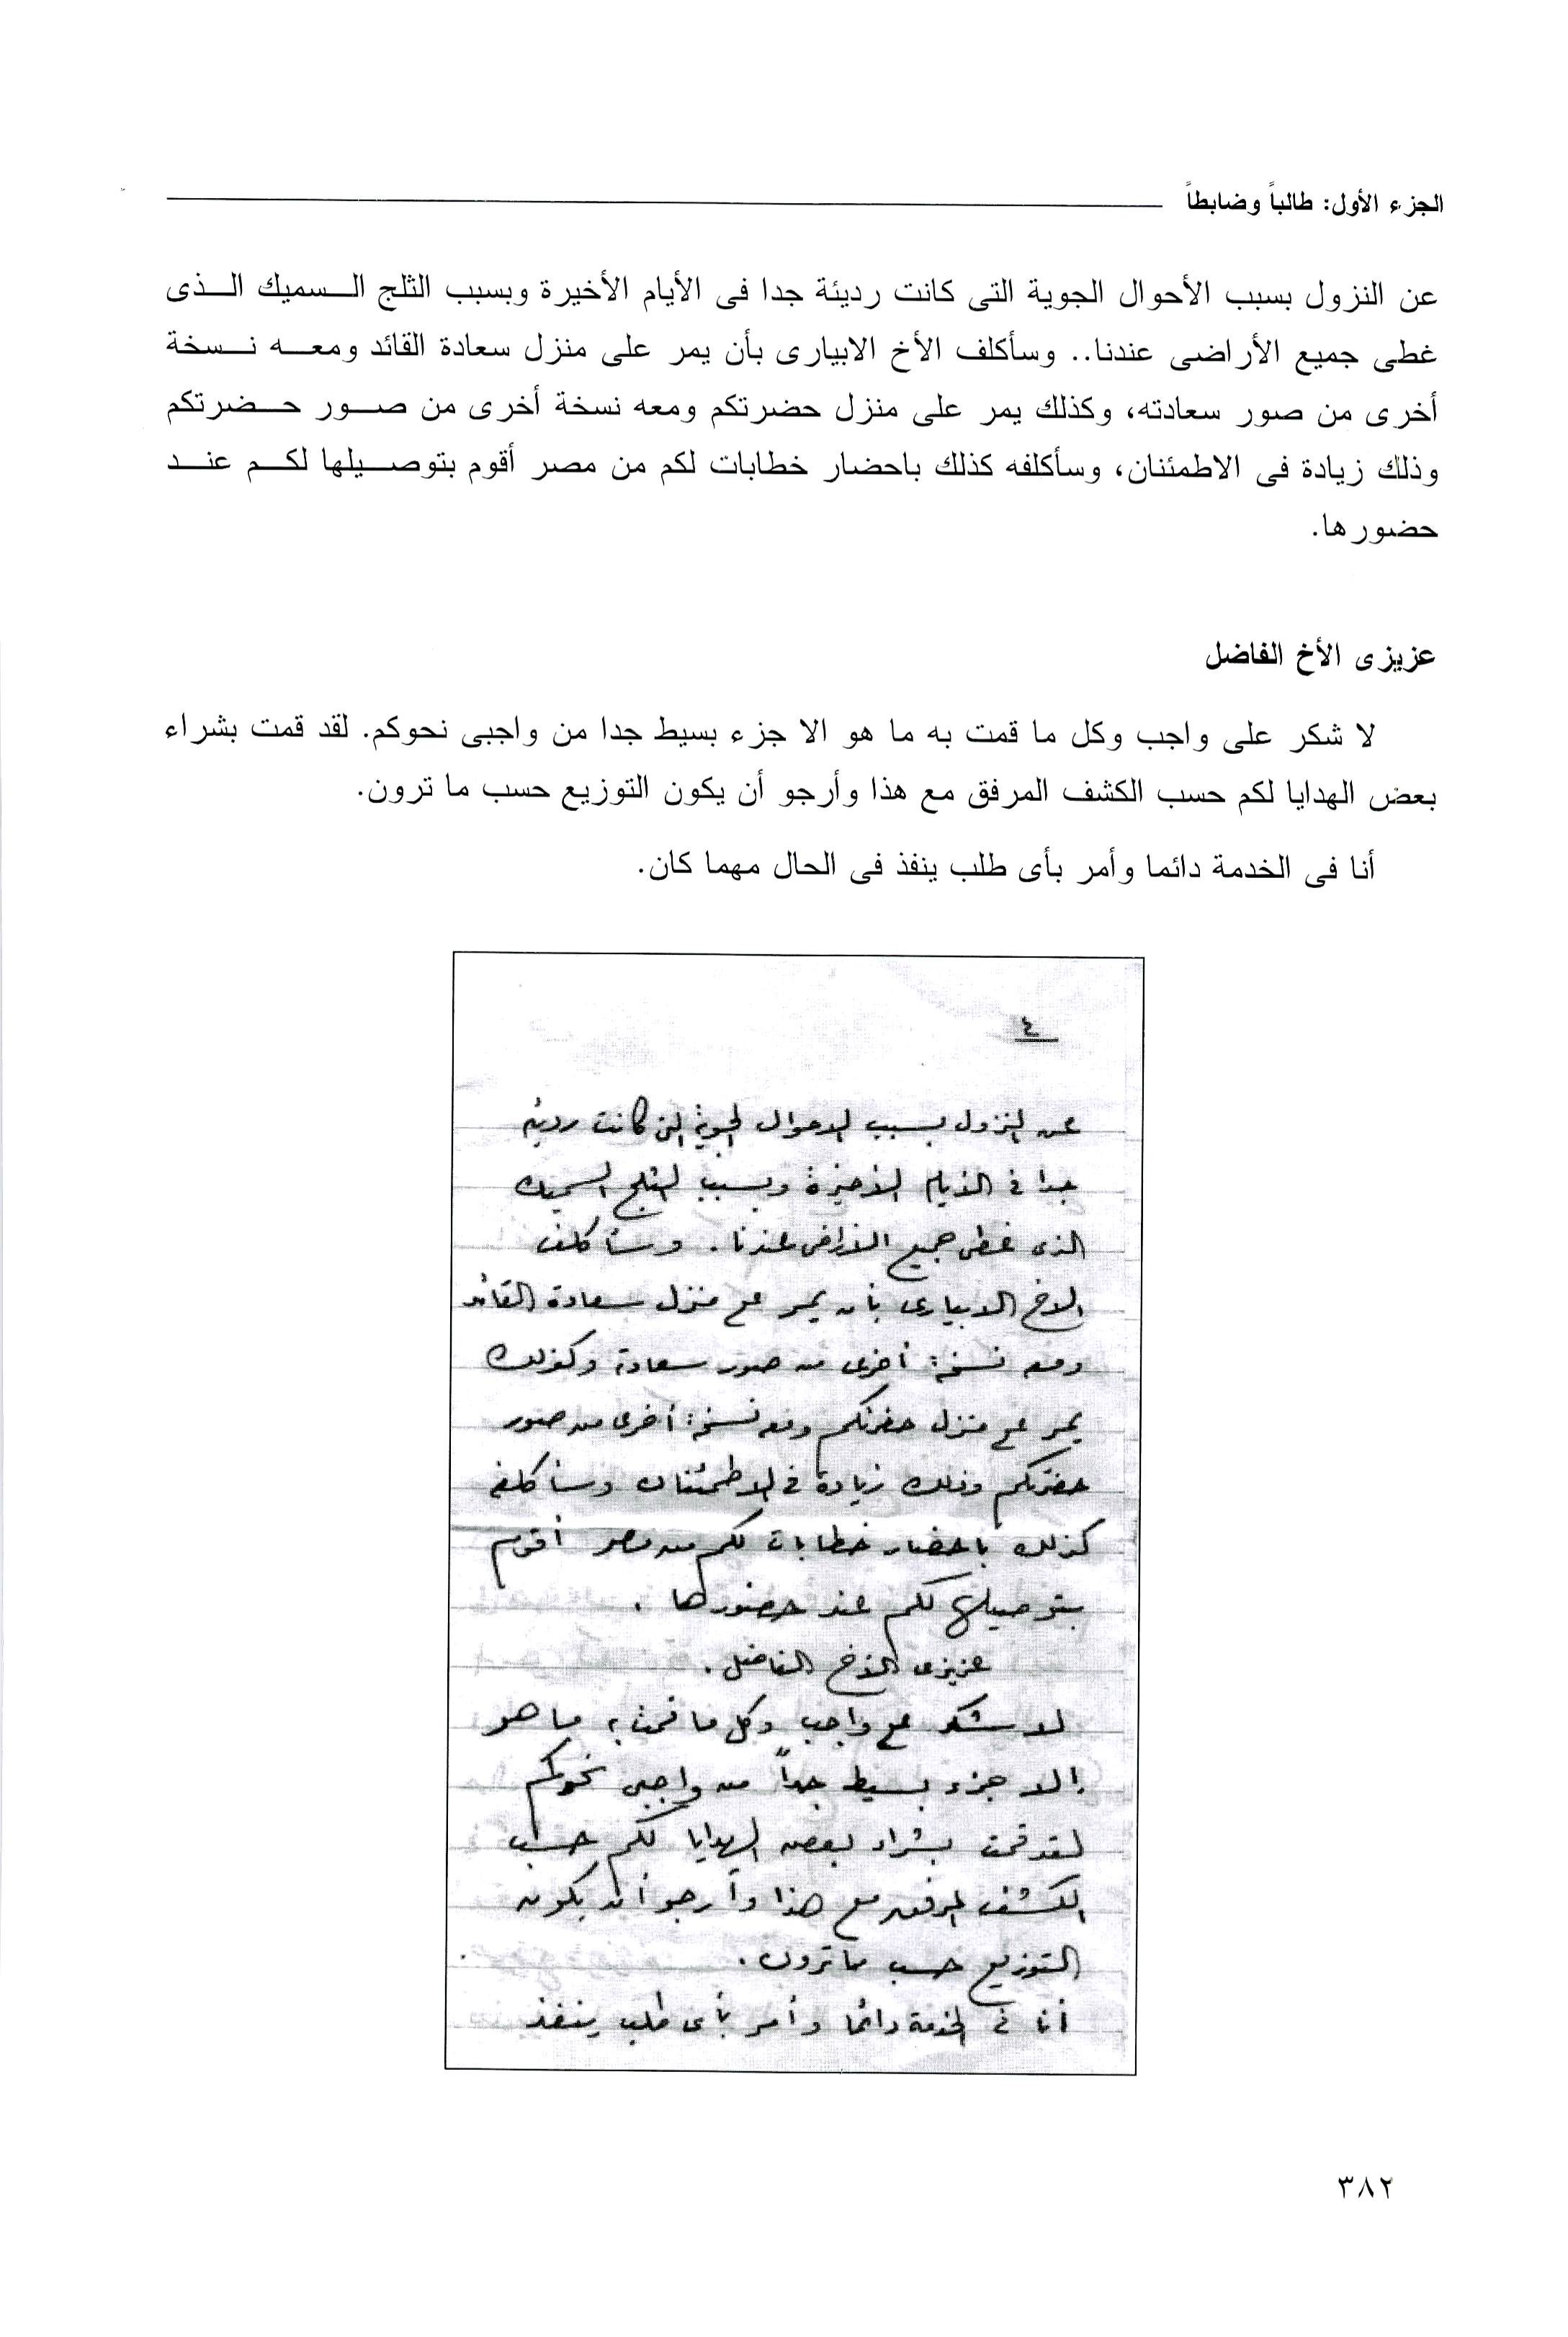 الجزء الأول: طالباً وضابطاً
عن النزول بسبب الأحوال الجوية التى كانت رديئة جدا فى الأيام الأخيرة وبسبب الثلج السميك الذى
غطى جميع الأراضى عندنا.. وسأكلف الأخ الابيارى بأن يمر على منزل سعادة القائد ومعه نسخة
أخرى من صور سعادته، وكذلك يمر على منزل حضرتكم ومعه نسخة أخرى من صور حضرتكم
وذلك زيادة فى الاطمئنان، وسأكلفه كذلك باحضار خطابات لكم من مصر أقوم بتوصيلها لكم عند
حضورها.
عزيزى الأخ الفاضل
لا شكر على واجب وكل ما قمت به ما هو الا جزء بسيط جدا من واجبى نحوكم. لقد قمت بشراء
بعض الهدايا لكم حسب الكشف المرفق مع هذا وأرجو أن يكون التوزيع حسب ما ترون.
أنا فى الخدمة دائما وأمر بأى طلب ينفذ فى الحال مهما كان.
٤
عن النزول بسبب الاحوال الجوية التى كانت رديئة
جدا فى الأيام الأخيرة وبسبب الثلج السميك
الذى غطى جميع الأراضى عندنا. وسأكلف
الاخ الابيارى بأن يمر على منزل سعادة القائد
ومعه نسخة أخرى من صور سعادته وكذلك
يمر على منزل حضرتكم ومعه نسخة أخرى من صور
حضرتكم وذلك زيادة فى الاطمئنان وسأكلفه
كذلك باحضار خطابات لكم من مصر أقوم
بتوصيلها لكم عند حضورها.
عزيزى الأخ الفاضل.
لا شكر على واجب وكل ما قمت به ما هو
إلا جزء بسيط جداً من واجبى نحوكم
لقد قمت بشراء بعض الهدايا لكم حسب
الكشف المرفق مع هذا وأرجو أن يكون
التوزيع حسب ما ترون.
أنا فى الخدمة دائما وأمر بأى طلب ينفذ
٣٨٢